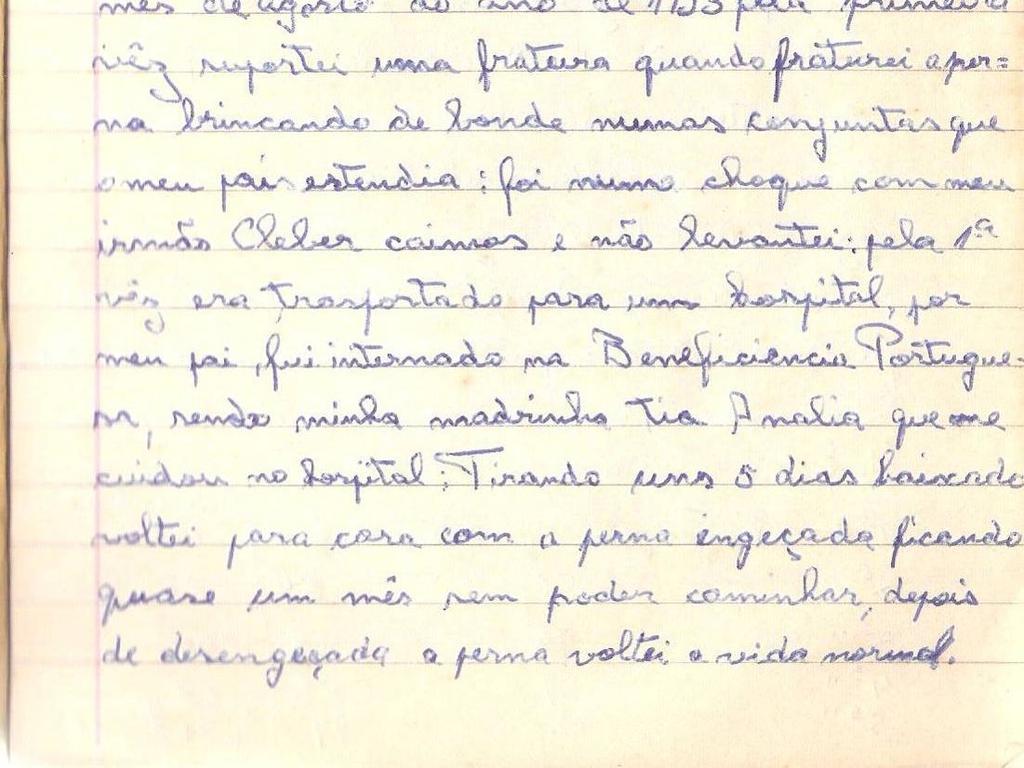 mês de agosto do ano de 1953 pela primeira
vêz suportei uma frateura quando fraturei a per=
na brincando de bonde numas conjuntas que
o meu pai estendia: foi numa choque com meu
irmão Cleber caimos e não levantei: pela 1ª
vêz era trasportado para um hospital, por
meu pai, fui internado na Beneficiencia Portugue-
sa, sendo minha madrinha tia Analia que me
cuidou no hospital; Tirando uns 5 dias baixado
voltei para casa com a perna engeçada ficando
quase um mês sem poder caminhar, depois
de desengeçada a perna voltei a vida normal.